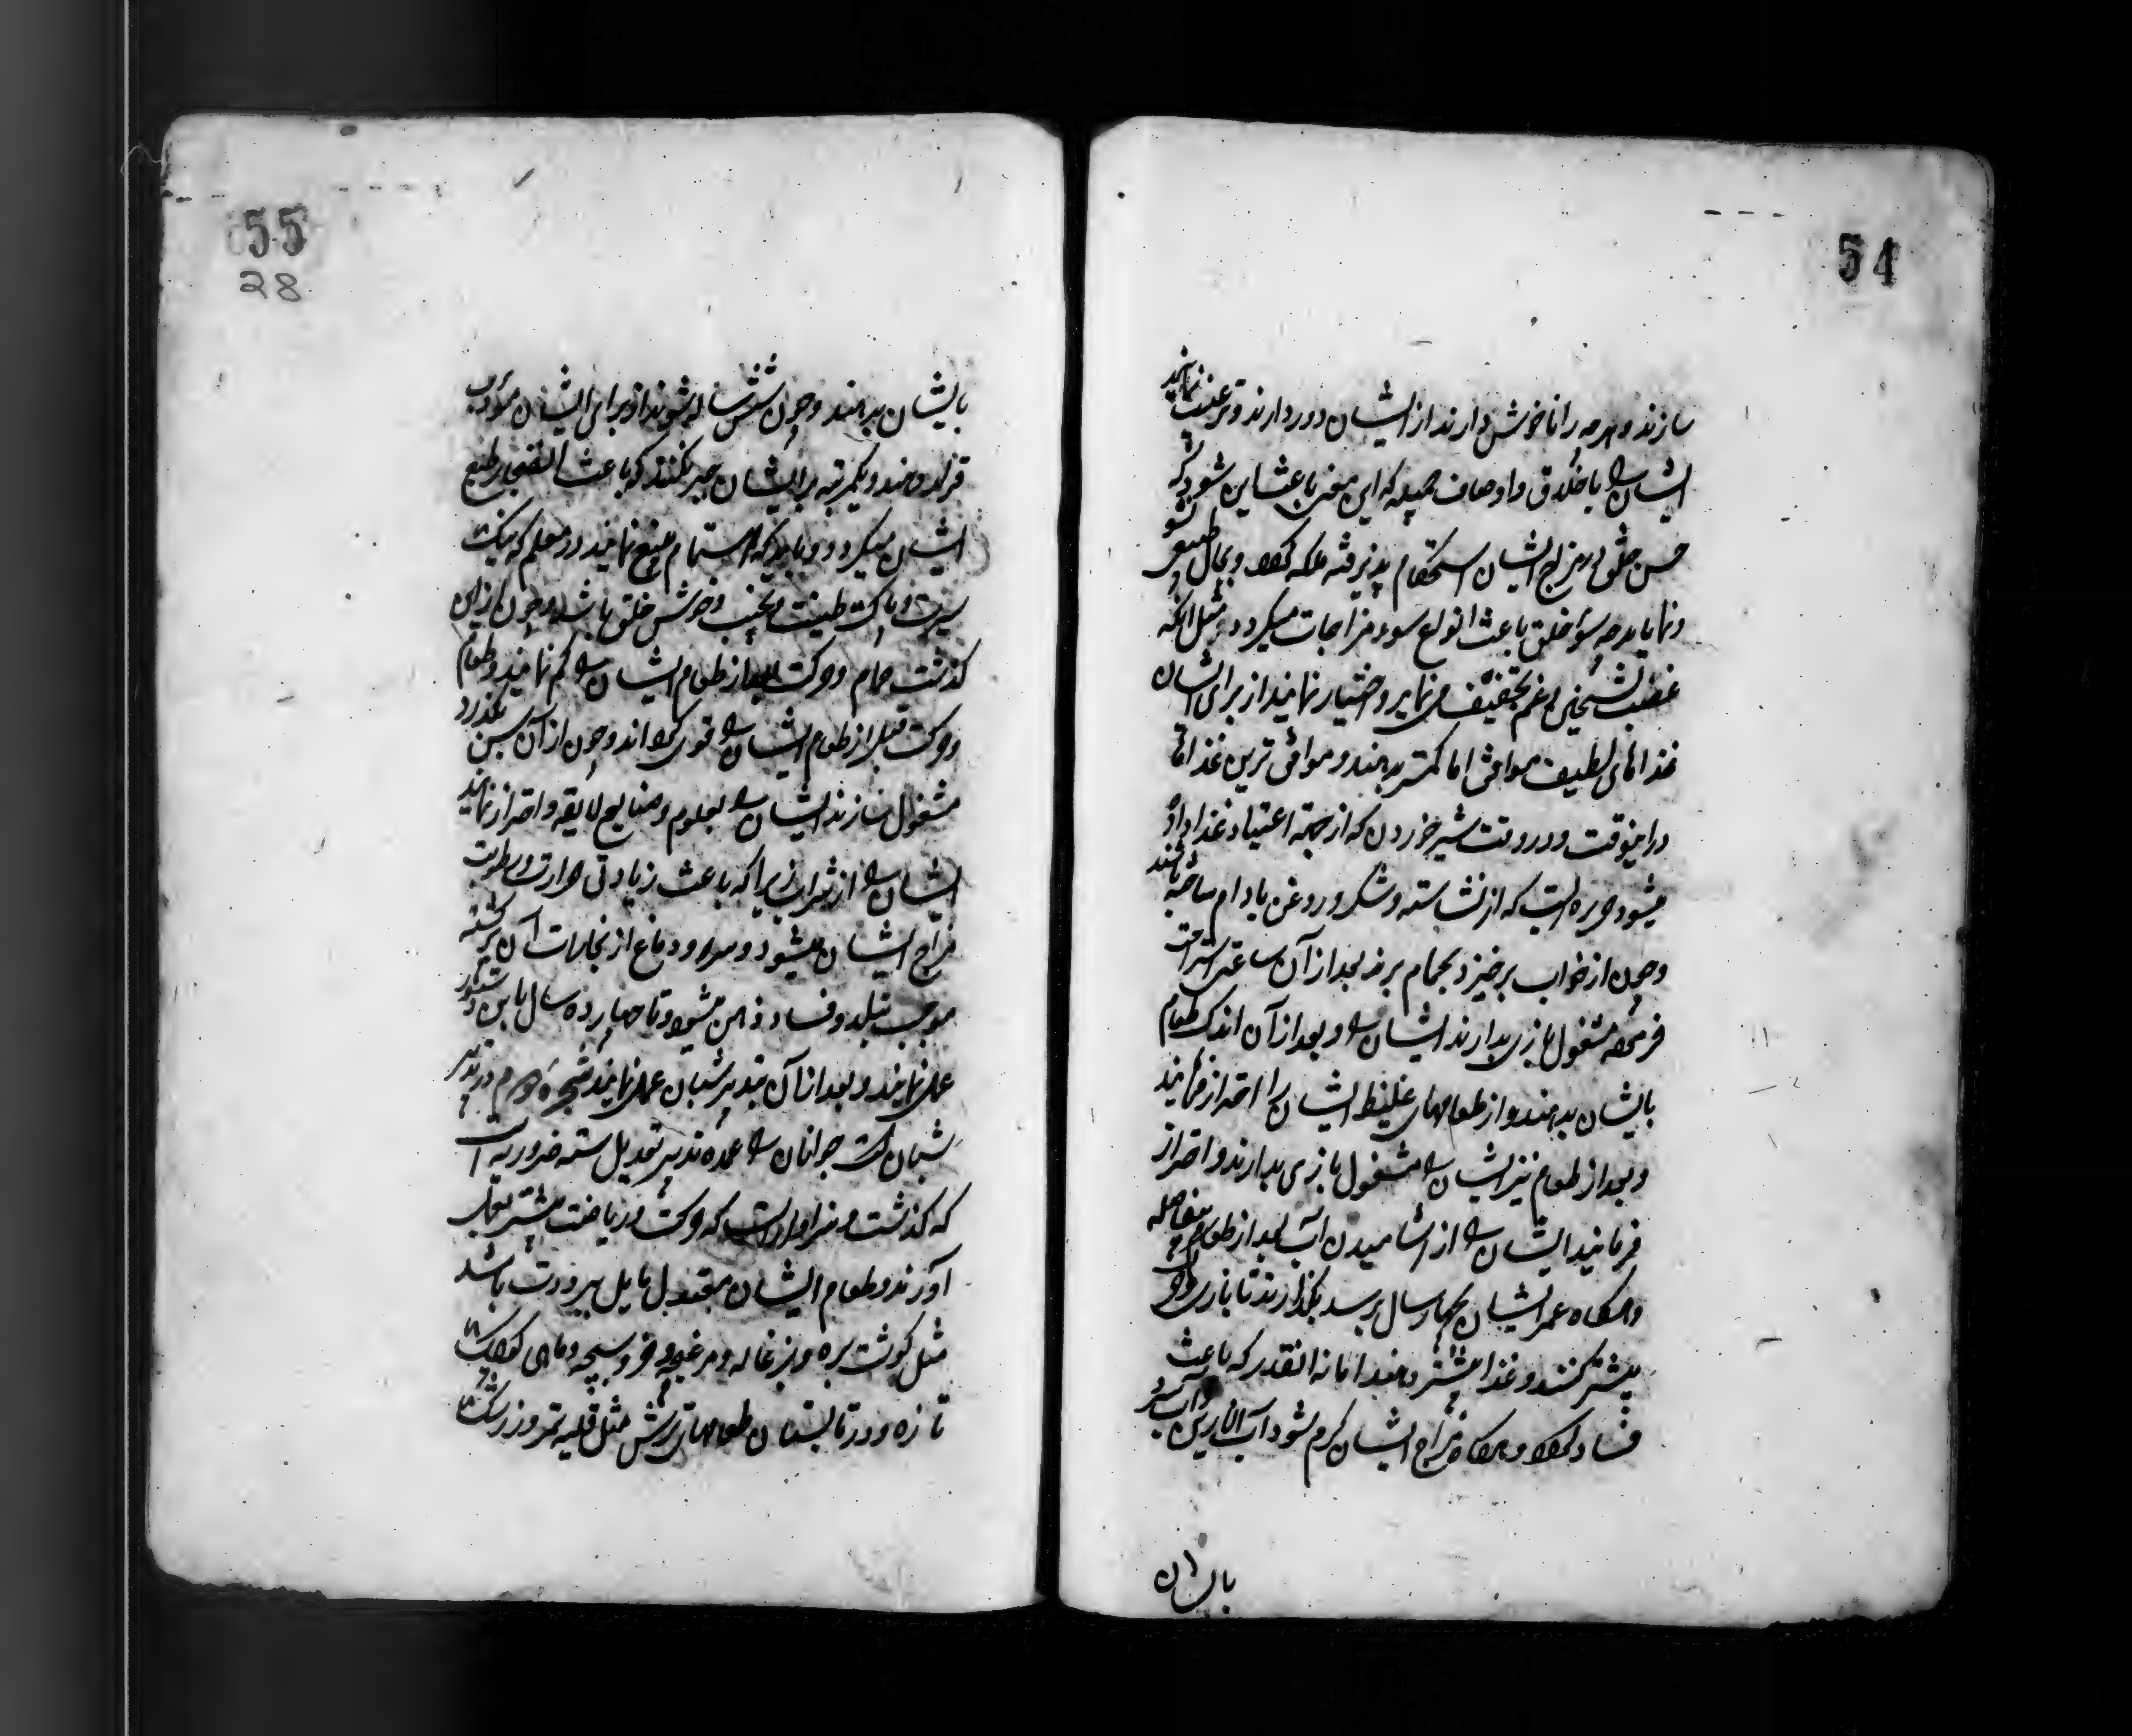 54
سازند و هرچه را ناخوش دارند از ایشان دور دارند و ترغیب نمایند
ایشان را باخلاق و اوصاف جمیله که این معنی باعث این شود که
حسن خلق در مزاج ایشان استحکام پذیرفته ملکه گردد و بحال طبیعی نشو
و نما یابد چه سوء خلق باعث انواع سوء مزاجات میگردد مثل آنکه
غضب تسخین و غم تجفیف می نماید و اختیار نمایند از برای ایشان
غذاهای لطیف موافق اما کمتر بدهند و موافق ترین غذاها
در اینوقت و در وقت شیر خوردن که از جهة اعتیاد غذا داده
میشود حریره ایست که از نشاسته و شکر و روغن بادام ساخته باشند
و چون از خواب برخیزد بحمام برند بعد از آن ساعتی استراحت
فرموده مشغول بازی بدارند ایشان را و بعد از آن اندک طعام
بایشان بدهند و از طعامهای غلیظ ایشان را احتراز فرمایند
و بعد از طعام نیز ایشان را مشغول بازی بدارند و احتراز
فرمایند ایشان را از آشامیدن آب بعد از طعام بیفاصله
و هرگاه عمر ایشان بچهار سال برسد بگذارند تا بازی و
بیشتر کنند و غذا بیشتر دهند اما نه آنقدر که باعث
فساد گردد و هرگاه مزاج ایشان گرم شود آب انارین و آب سرد
بایشان
55
28
بایشان بدهند و چون شش ساله شوند از برای ایشان مؤدب
قرار دهند و یکمرتبه بر ایشان جبر نکنند که باعث انضجار طبع
ایشان میگردد و باید که اهتمام بلیغ نمایند در معلم که نیک
سیرت و پاک طینت و نجیب و خوش خلق باشد و چون از این
گذشت حمام و حرکت بعد از طعام ایشان را کم نمایند و طعام
و حرکت قبل از طعام ایشان را قوی گردانند و چون از آن سن بگذرد
مشغول سازند ایشان را بعلوم و صنایع لایقه و احتراز نمایند
ایشان را از شراب زیرا که باعث زیادتی حرارت و رطوبت
مزاج ایشان میشود و سر و دماغ از بخارات آن پر گشته
موجب تبلد و فساد ذهن میشود و تا چهارده سال باین دستور
عمل نمایند و بعد از آن بتدبیر شبان عمل نمایند شجره دوم در تدبیر
شبان است جوانان را عمده تدبیر تعدیل سته ضروریه است
که گذشت و سزاوار است که حرکت و ریاضت بیشتر بعمل
آورند و طعام ایشان معتدل مایل ببرودت باشد
مثل گوشت بره و بزغاله و مرغ و خروسبچه و ماهی کوچک
تازه و در تابستان طعامهای ترش مثل قلیه تمر و زرشک